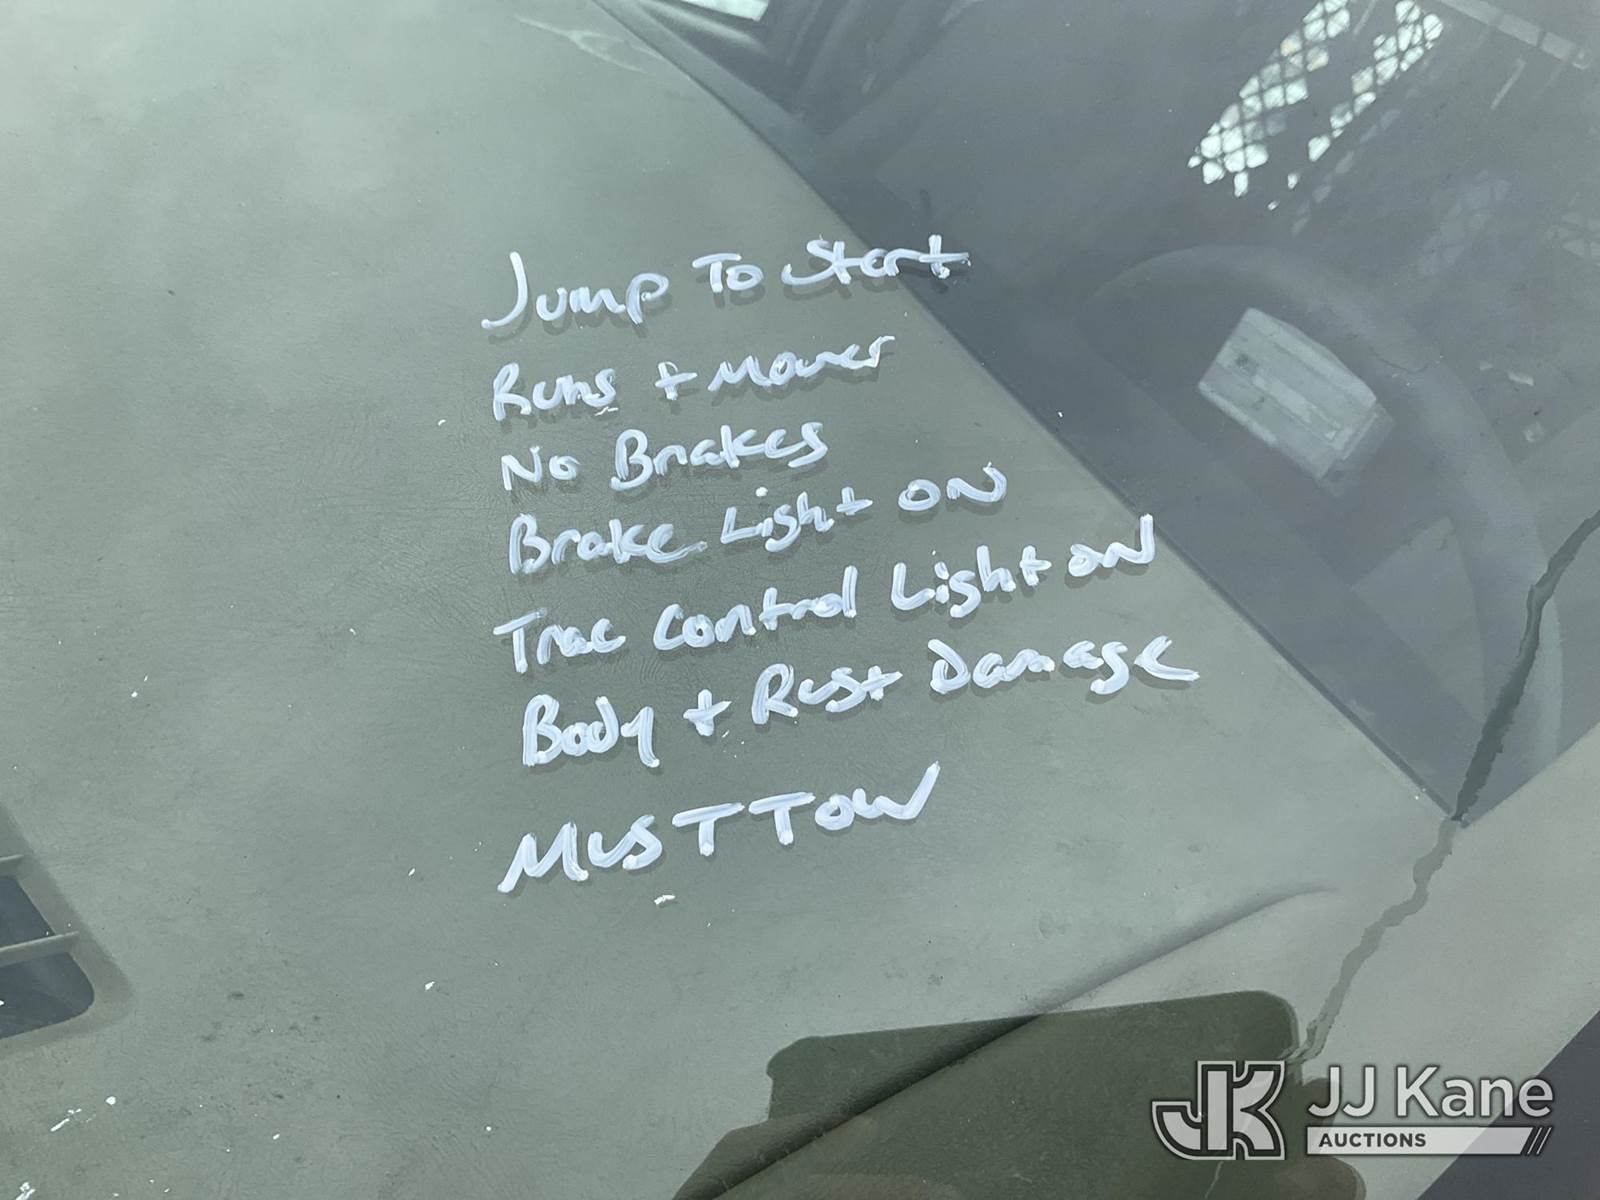 Jump To Start
Runs + Mover
No Brakes
Brake Light ON
Trac Control Light ON
Body + Rust Damage
MUST TOW
JK JJ Kane
AUCTIONS